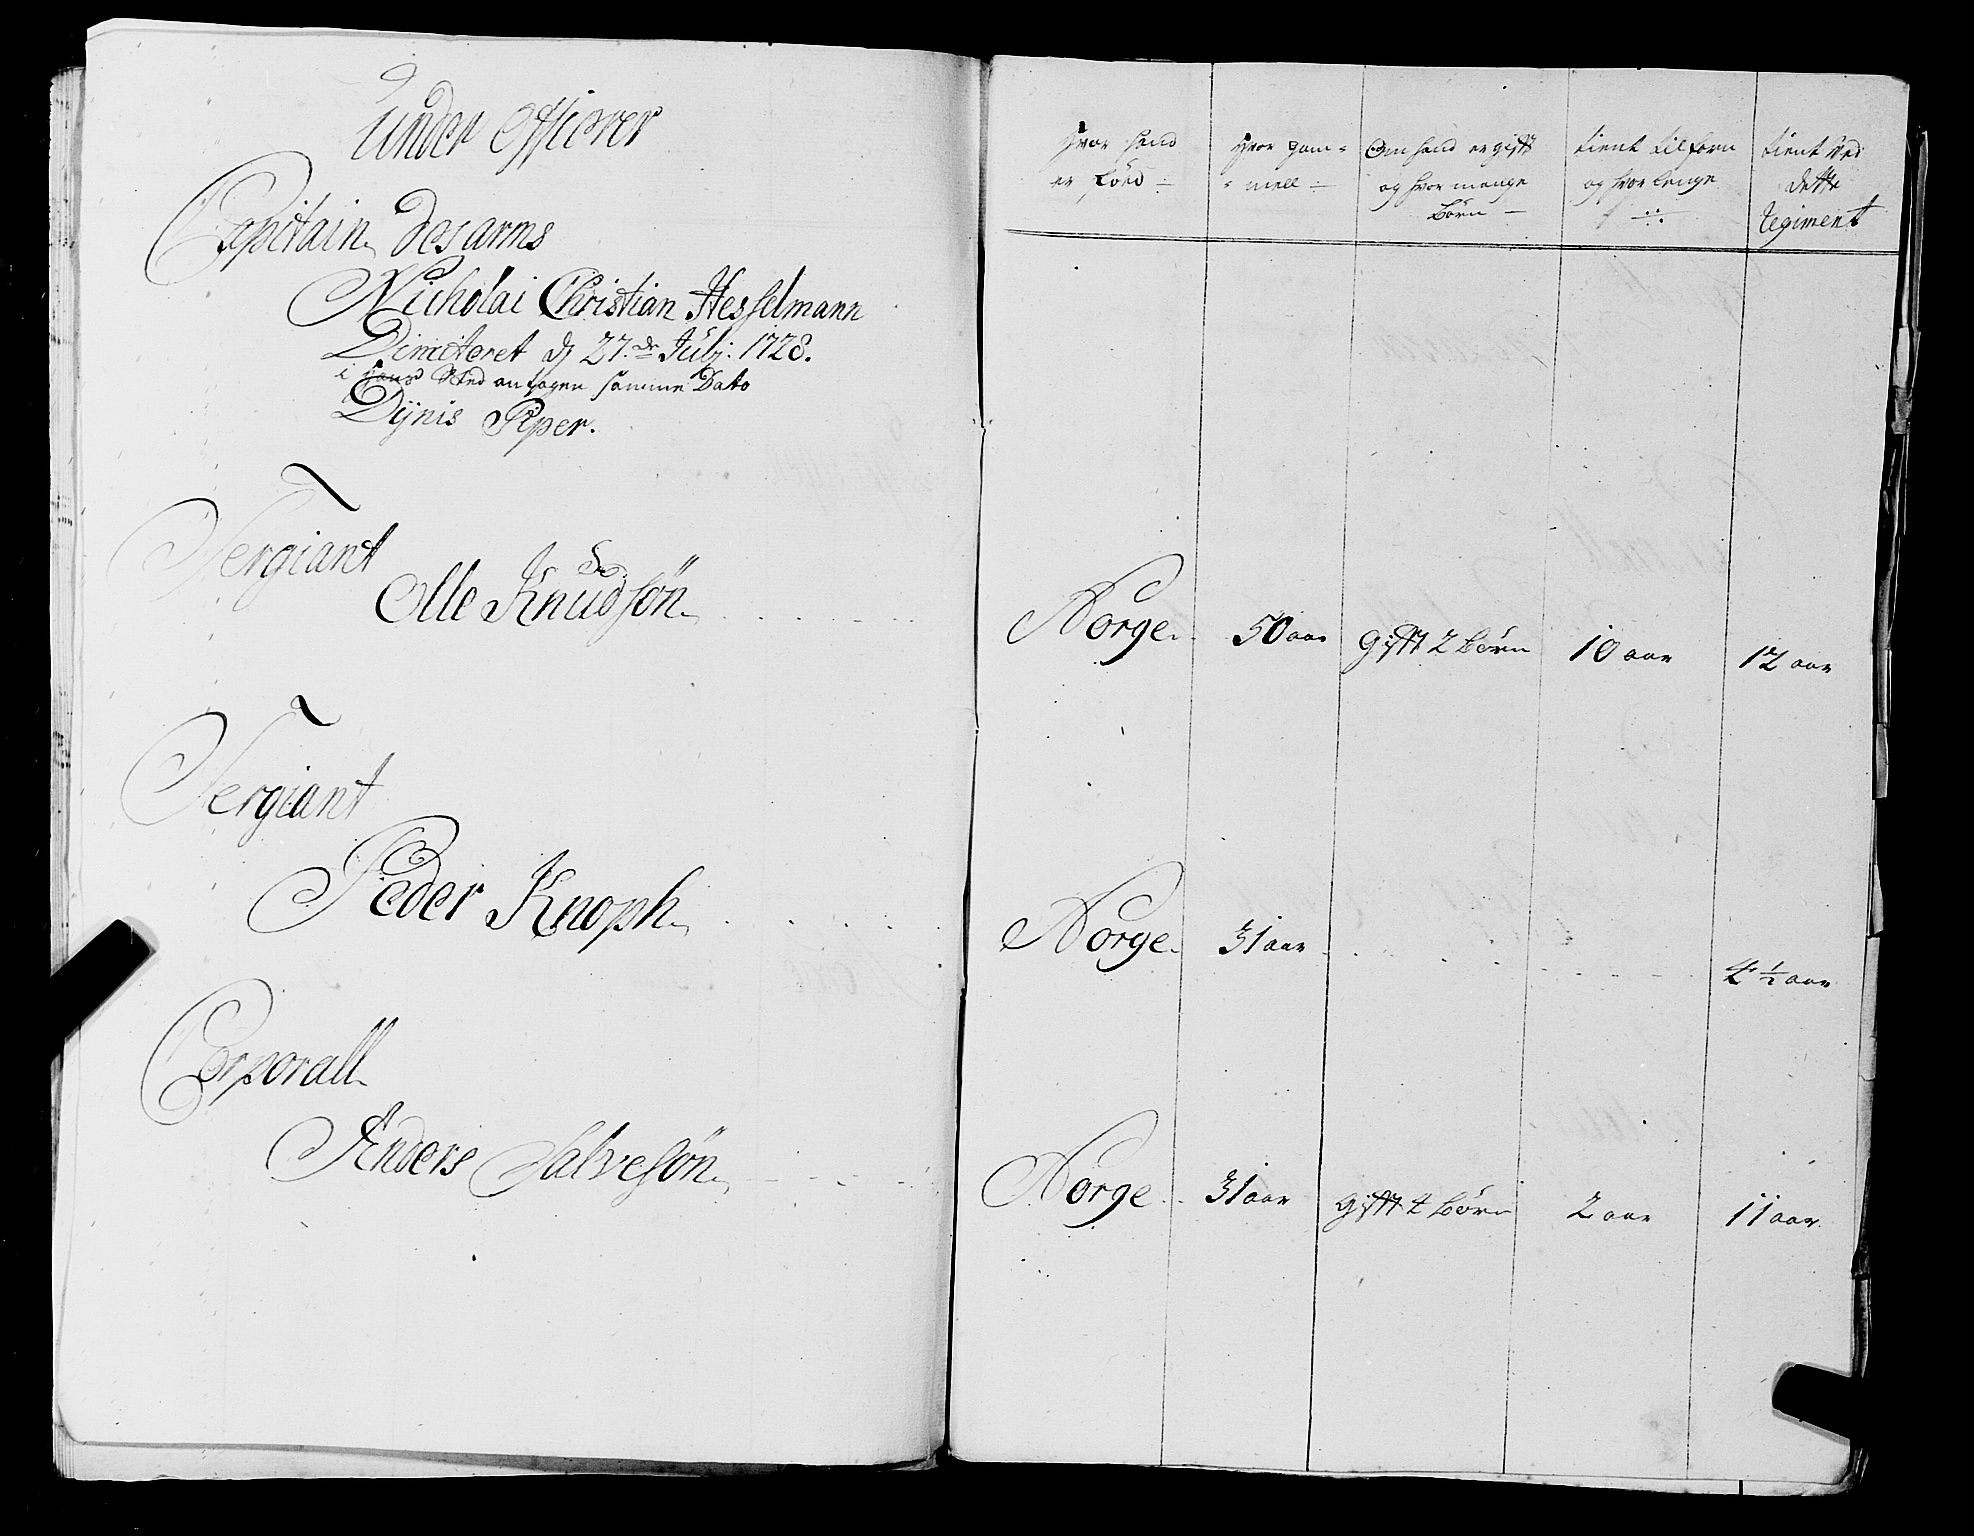 Under Officerer
Capitain des arms
Nicholai Christian Hesselmann
Dimitteret d 27de Julj: 1728.
i hans Sted antagen samme Dato
Dÿnis Piper.
Sergiant
Olle Knudsøn
Sergiant
Peder Knoph
Corporall
Anders Salvesøn
Hvor hand er født
Hvor gam=
=mell
Om hand er gift
og hvor mange
Børn
tient tilforn
og hvor lenge
tient ved
dette
Regiment
Norge. 50 aar gifft 2 børn 10 aar 12 aar
Norge. 31 aar 4 ½ aar
Norge 31 aar gifft 4 børn 2 aar 11 aar